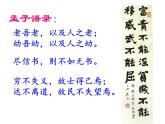 孟子语录：
老吾老，以及人之老；
幼吾幼，以及人之幼。
尽信书，则不如无书。
穷不失义，故士得己焉；
达不离道，故民不失望焉。
富贵不能淫贫贱不能
移威武不能屈